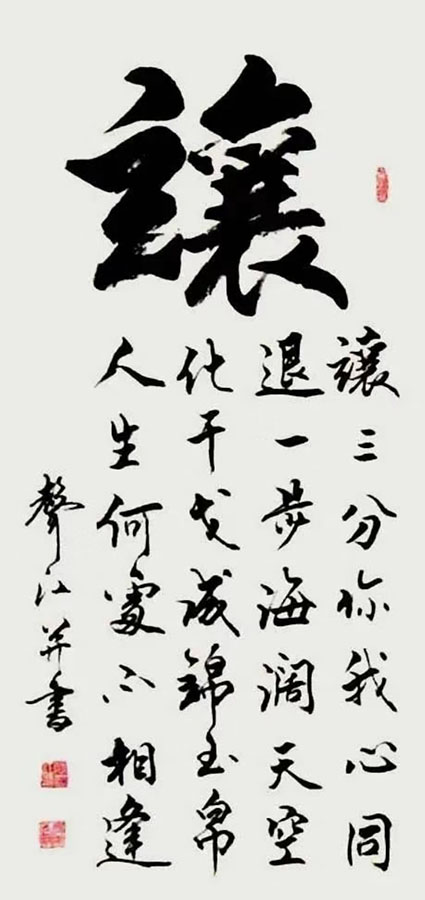 讓
讓三分你我心同
退一步海阔天空
化干戈成錦玉帛
人生何處不相逢
聲江并書